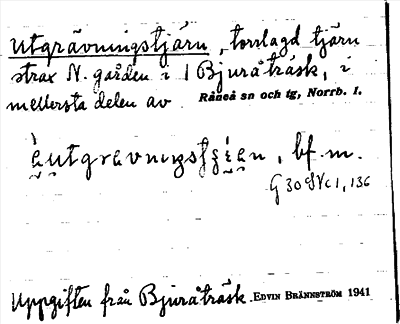 Utgrävningstjärn, torrlagd tjärn
strax N. gården i 1 Bjuråträsk, i
mellersta delen av Råneå sn och tg, Norrb. l.
bf. m.
G 30 SVc 1, 136
Uppgiften från Bjuråträsk. EDVIN BRÄNNSTRÖM 1941